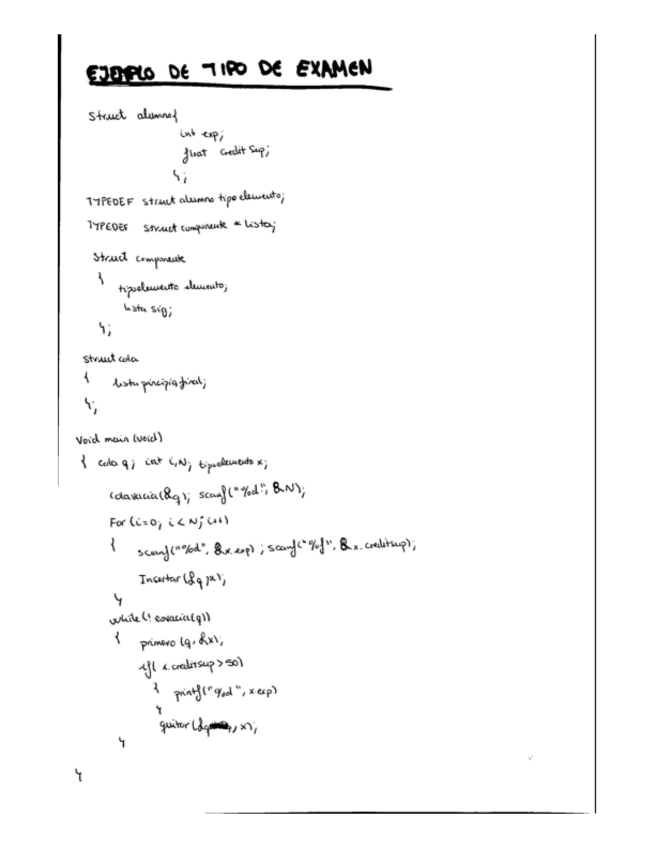 EJEMPLO DE TIPO DE EXAMEN
Struct alumno{
int exp;
float Credit Sup;
};
TYPEDEF struct alumno tipo elemento;
TYPEDEF struct componente * Lista;
Struct componente
{
tipoelemento elemento;
lista sig;
};
Struct cola
{ lista principio, final;
};
Void main (void)
{ cola q; int i, N; tipoelemento x;
Colavacia(&q); scanf("%d", &N);
For (i=0; i < N; i++)
{ scanf("%d", &x.exp); scanf("%f", &x.creditsup);
Insertar(&q, x);
}
while (! esvacia(q))
{ primero (q, &x);
if( x.creditsup > 50)
{ printf("%d", x.exp)
}
quitar (&q, x);
}
}